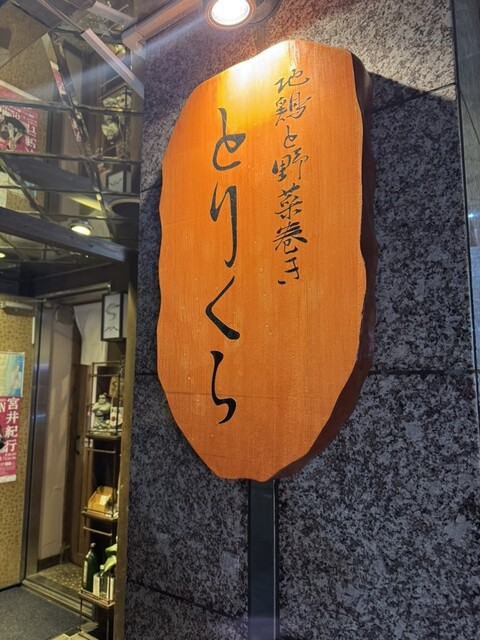 地鶏と野菜巻き
とりくら
宮井紀行